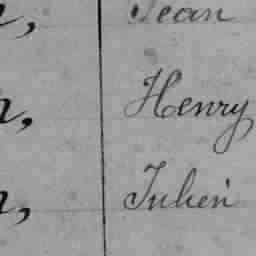 n, Jean
n, Henry
n, Julien